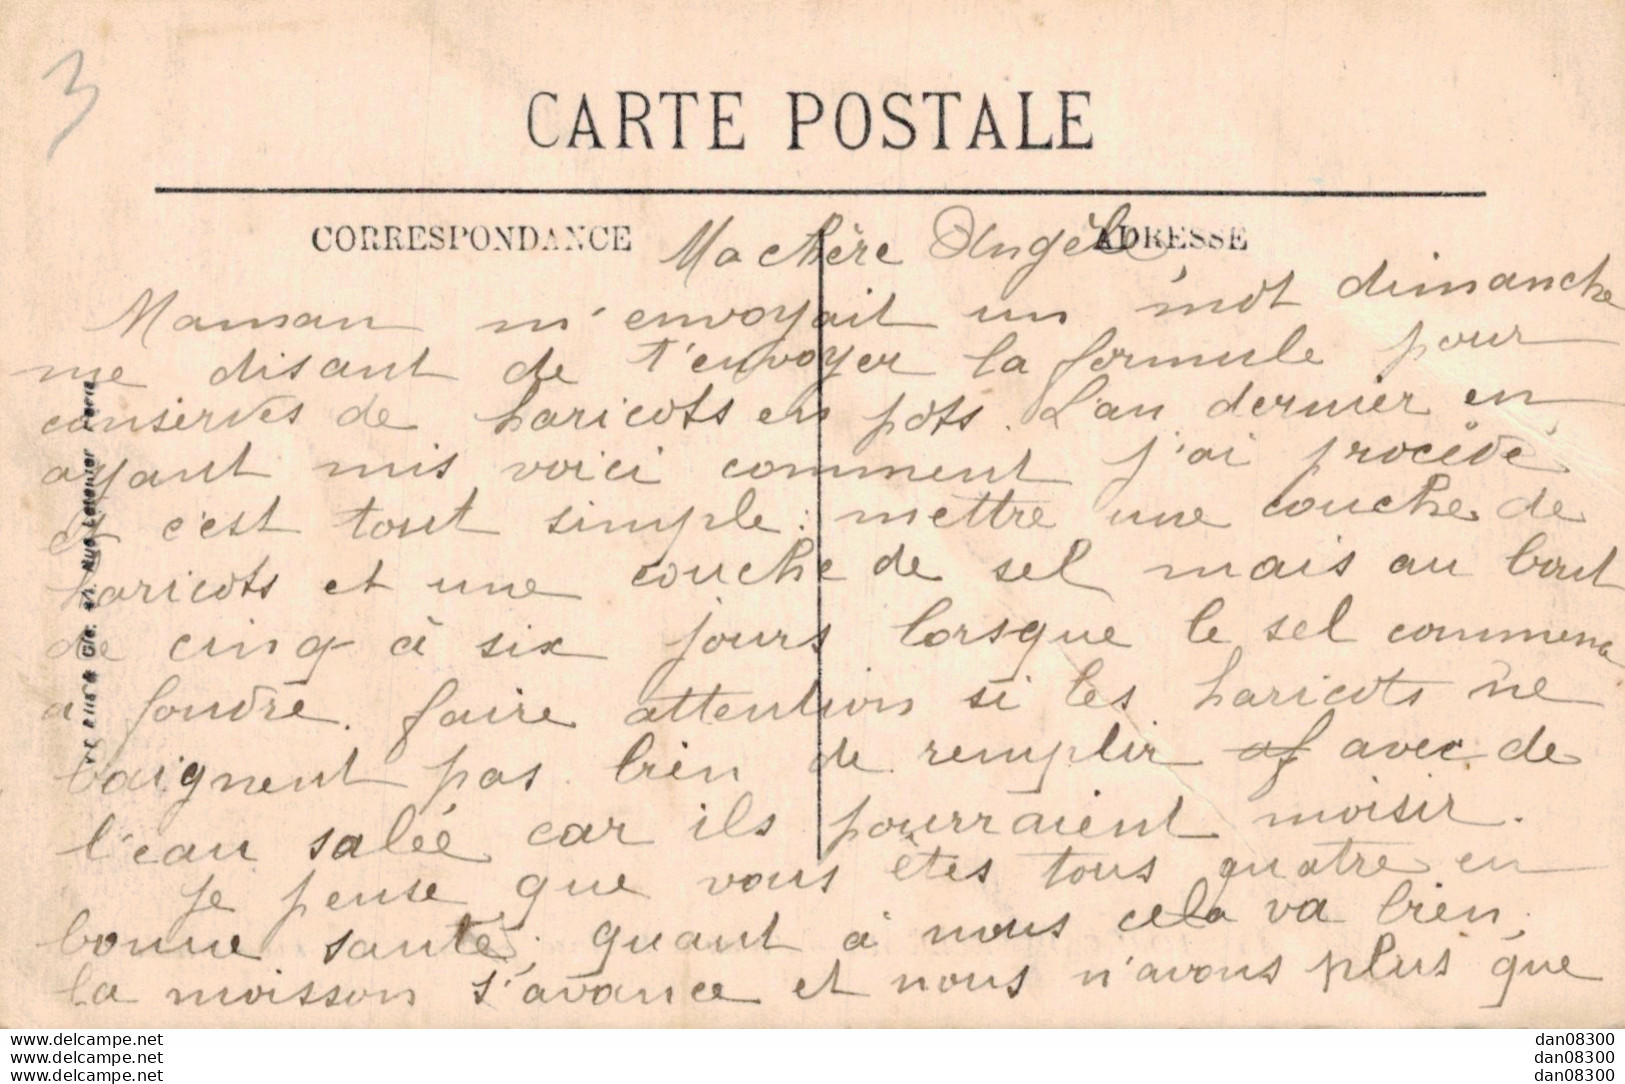 3
CARTE POSTALE
CORRESPONDANCE
ADRESSE
Ma chère Angèle
Maman m'envoyait un mot dimanche
me disant de t'envoyer la formule pour
conserves de haricots en pots. L'an dernier en
ayant mis voici comment j'ai procédé
et c'est tout simple : mettre une couche de
haricots et une couche de sel mais au bout
de cinq à six jours lorsque le sel commence
a fondre. faire attention si les haricots ne
baignent pas bien de remplir avec de
l'eau salée car ils pourraient moisir.
Je pense que vous êtes tous quatre en
bonne santé, quant à nous cela va bien,
la moisson s'avance et nous n'avons plus que
www.delcampe.net
www.delcampe.net
www.delcampe.net
dan08300
dan08300
dan08300